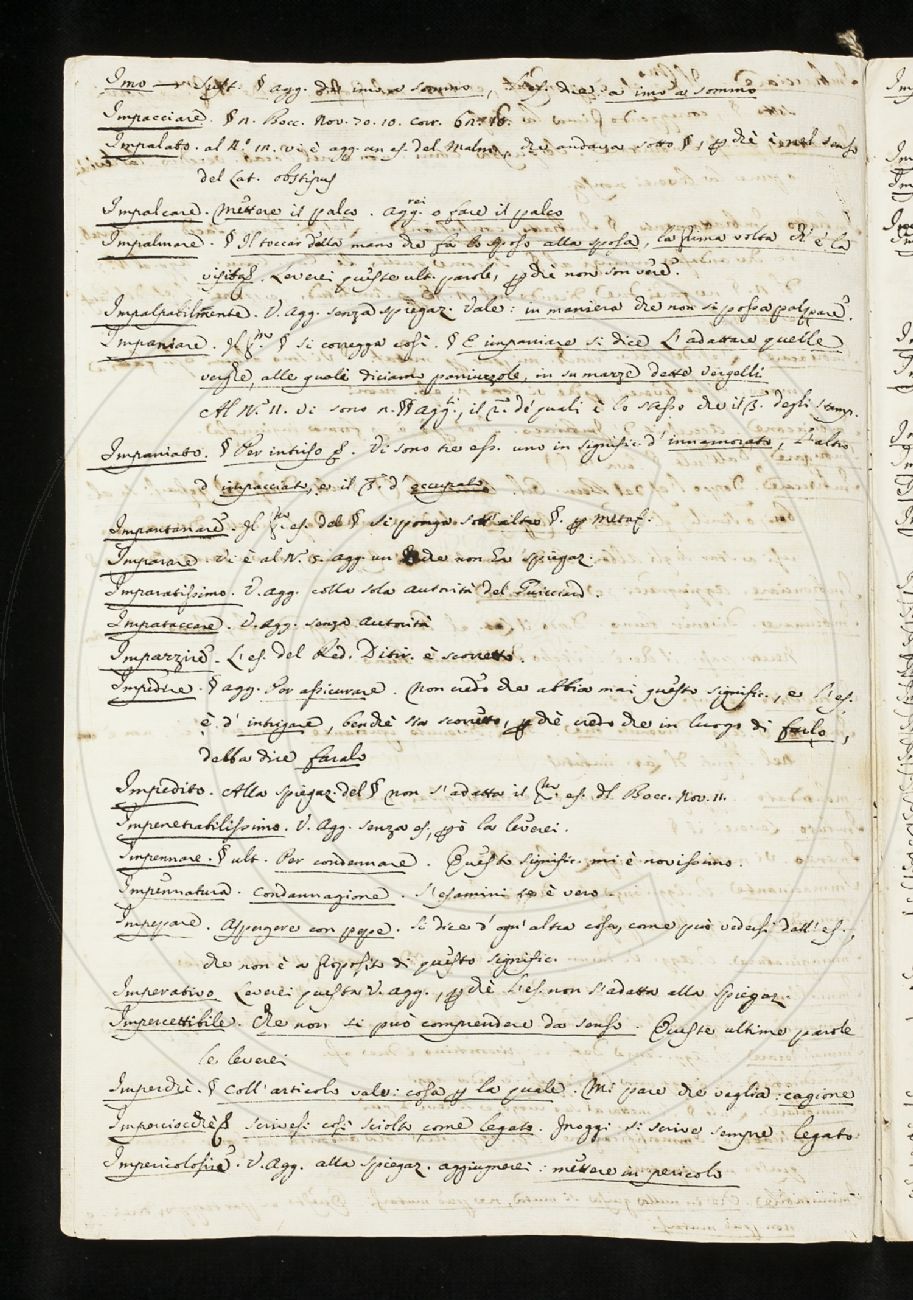 Imo — Sust. § agg. da imo a sommo, L'es. dice a imo a sommo
Impacciare. § n. Bocc. Nov. 70. 10. corr.
Impalato. al N.º III. vi è agg. un es. del Malm., che andava sotto §, pchè è nel senso
del Lat. obstipus
Impalcare. Mettere il palco. Agg.rei o fare il palco
Impalmare. § Il toccar della mano che fa lo sposo alla sposa, la prima volta ch'è la
visita. Leverei queste ult. parole, pchè non son vere.
Impalpabilmente. V. Agg. senza spiegaz. Vale: in maniera che non si possa palpare.
Impaniare. Il § si corregga così. § E impaniare si dice L'adattare quelle
verghe, alle quali diciamo paniuzzole, in su mazze dette vergelli
Al N.º II. vi sono n. §§ Agg.ti, il 2.º de' quali è lo stesso che il 3.º degli stamp.
Impaniato. § Per intriso. Vi sono tre ess. uno in signific. d'innamorato, L'altro
d'impacciato, e il 3.º d'occupato.
Impantanare. Il es. del § si ponga sott'altro § p metaf.
Imparare. Vi è al N. 5. Agg. un che non ha spiegaz.
Imparatissimo. V. Agg. colla sola autorità del Guicciard.
Impataccare. V. Agg. senza autorità
Impazzire. L'es. del Red. Ditir. è scorretto.
Impedire. § agg. Per assicurare. Non credo che abbia mai questo signific., e L'es.
è d'intrigare, benchè sia scorretto, pchè credo che in luogo di farlo,
debba dire faralo
Impedito. Alla spiegaz. del § non s'adatta il es. del Bocc. Nov. 11.
Impenetrabilissimo. V. Agg. senza es, pò la leverei.
Impennare. § ult. Per condennare. Questo signific. mi è novissimo.
Impennatura. Condannagione. S'esamini se è vero.
Impepare. Aspergere con pepe. Si dice d'ogn'altra cosa, come può vedersi dall'es.,
che non è a proposito di questo signific.
Imperativo Leverei questa V. Agg., pchè L'es. non s'adatta alla spiegaz.
Impercettibile. Che non si può comprendere da senso. Queste ultime parole
le leverei
Imperchè. § Coll'articolo vale: cosa p la quale. Mi pare che vaglia: cagione
Imperciocchè § scrivesi così sciolto come legato. Inoggi si scrive sempre legato
Impericolosire. V. Agg. alla spiegaz. aggiugnerei: mettere in pericolo